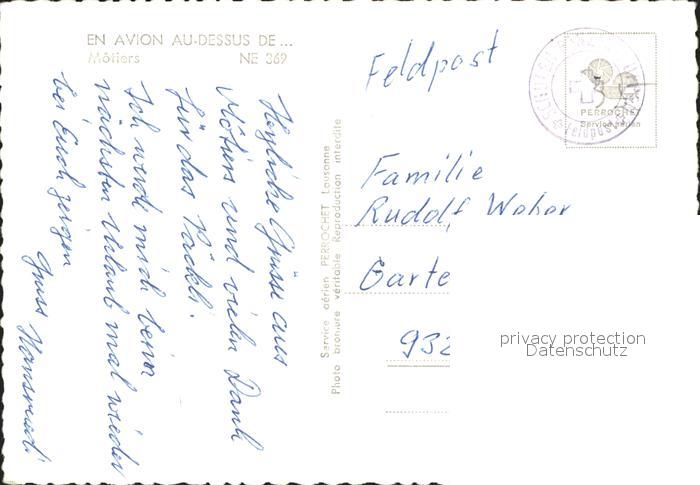 EN AVION AU-DESSUS DE ...
Môtiers NE 369
Herzliche Grüsse aus
Môtiers und vielen Dank
für das Päckli.
Ich werde mich beim
nächsten Urlaub mal wieder
bei Euch zeigen
Gruss Hansruedi
Service aérien PERROCHET Lausanne
Photo bromure véritable Reproduction interdite
Feldpost
PERROCHET
Service aérien
Feldpost
Familie
Rudolf Weber
Garte
932
privacy protection
Datenschutz